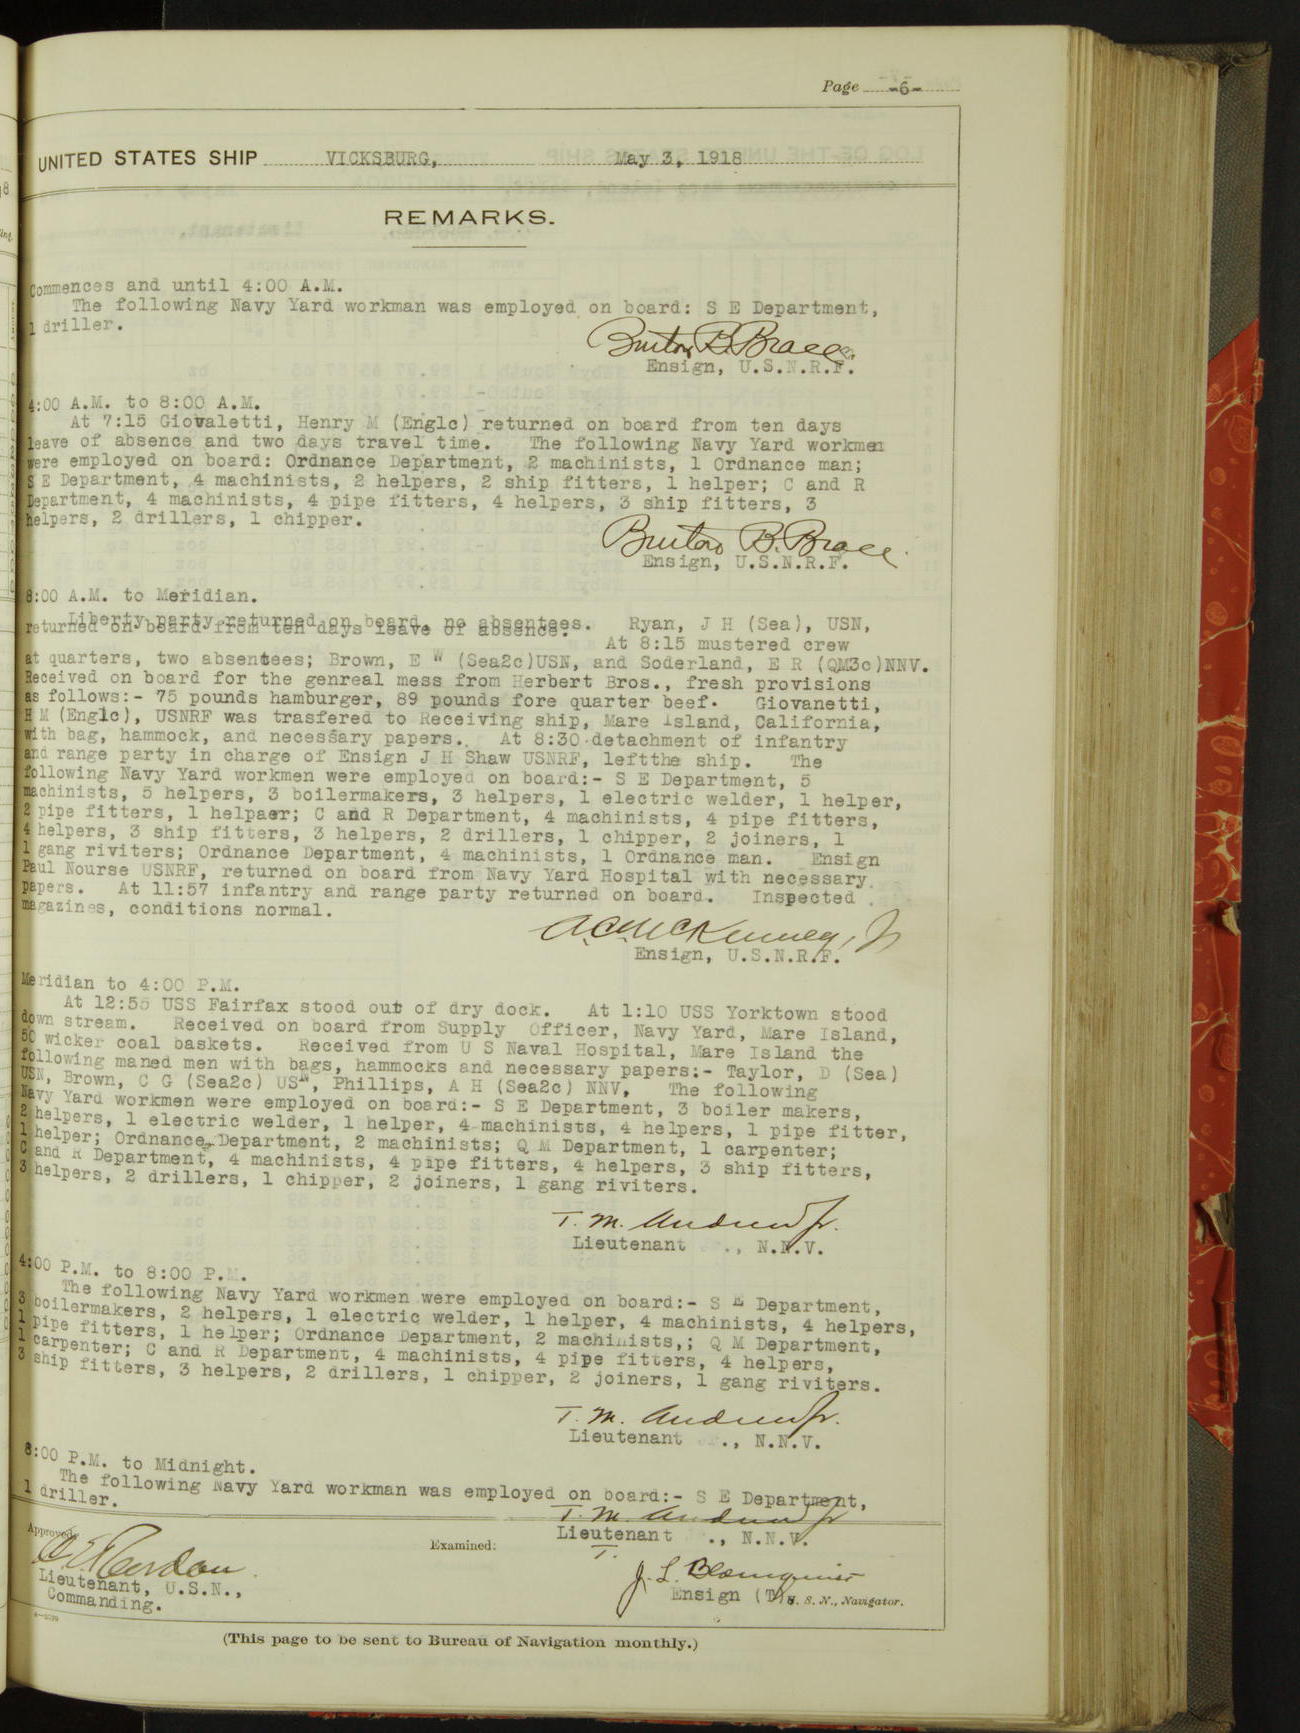 Page -6-
UNITED STATES SHIP VICKSBURG, May 3, 1918
REMARKS.
Commences and until 4:00 A.M.
The following Navy Yard workman was employed on board: S E Department,
1 driller.
Burton B. Brace
Ensign, U.S.N.R.F.
4:00 A.M. to 8:00 A.M.
At 7:15 Giovaletti, Henry M (Eng1c) returned on board from ten days
leave of absence and two days travel time. The following Navy Yard workmen
were employed on board: Ordnance Department, 2 machinists, 1 Ordnance man;
S E Department, 4 machinists, 2 helpers, 2 ship fitters, 1 helper; C and R
Department, 4 machinists, 4 pipe fitters, 4 helpers, 3 ship fitters, 3
helpers, 2 drillers, 1 chipper.
Burton B. Brace
Ensign, U.S.N.R.F.
8:00 A.M. to Meridian.
Liberty party returned on board, no absentees. Ryan, J H (Sea), USN,
returned on board from ten days leave of absence. At 8:15 mustered crew
at quarters, two absentees; Brown, E W (Sea2c)USN, and Soderland, E R (QM3c)NNV.
Received on board for the genreal mess from Herbert Bros., fresh provisions
as follows:- 75 pounds hamburger, 89 pounds fore quarter beef. Giovanetti,
H M (Eng1c), USNRF was trasfered to Receiving ship, Mare Island, California,
with bag, hammock, and necessary papers. At 8:30 detachment of infantry
and range party in charge of Ensign J H Shaw USNRF, leftthe ship. The
following Navy Yard workmen were employed on board:- S E Department, 5
machinists, 5 helpers, 3 boilermakers, 3 helpers, 1 electric welder, 1 helper,
2 pipe fitters, 1 helpaer; C and R Department, 4 machinists, 4 pipe fitters,
4 helpers, 3 ship fitters, 3 helpers, 2 drillers, 1 chipper, 2 joiners, 1
1 gang riviters; Ordnance Department, 4 machinists, 1 Ordnance man. Ensign
Paul Nourse USNRF, returned on board from Navy Yard Hospital with necessary
papers. At 11:57 infantry and range party returned on board. Inspected
magazines, conditions normal.
A.C. McKenney, Jr
Ensign, U.S.N.R.F.
Meridian to 4:00 P.M.
At 12:55 USS Fairfax stood out of dry dock. At 1:10 USS Yorktown stood
down stream. Received on board from Supply Officer, Navy Yard, Mare Island,
50 wicker coal baskets. Received from U S Naval Hospital, Mare Island the
following maned men with bags, hammocks and necessary papers:- Taylor, D (Sea)
USN, Brown, C G (Sea2c) USN, Phillips, A H (Sea2c) NNV, The following
Navy Yard workmen were employed on board:- S E Department, 3 boiler makers,
2 helpers, 1 electric welder, 1 helper, 4 machinists, 4 helpers, 1 pipe fitter,
1 helper; Ordnance Department, 2 machinists; Q M Department, 1 carpenter;
C and R Department, 4 machinists, 4 pipe fitters, 4 helpers, 3 ship fitters,
3 helpers, 2 drillers, 1 chipper, 2 joiners, 1 gang riviters.
T. M. Andrew Jr.
Lieutenant ., N.N.V.
4:00 P.M. to 8:00 P.M.
The following Navy Yard workmen were employed on board:- S E Department,
3 boilermakers, 2 helpers, 1 electric welder, 1 helper, 4 machinists, 4 helpers,
1 pipe fitters, 1 helper; Ordnance Department, 2 machinists,; Q M Department,
1 carpenter; C and R Department, 4 machinists, 4 pipe fitters, 4 helpers,
3 ship fitters, 3 helpers, 2 drillers, 1 chipper, 2 joiners, 1 gang riviters.
T. M. Andrew Jr.
Lieutenant ., N.N.V.
8:00 P.M. to Midnight.
The following Navy Yard workman was employed on board:- S E Department,
1 driller.
T. M. Andrew Jr
Lieutenant ., N.N.V.
Approved:
Lieutenant, U.S.N.,
Commanding.
Examined:
J. L.
Ensign (T) U. S. N., Navigator.
(This page to be sent to Bureau of Navigation monthly.)